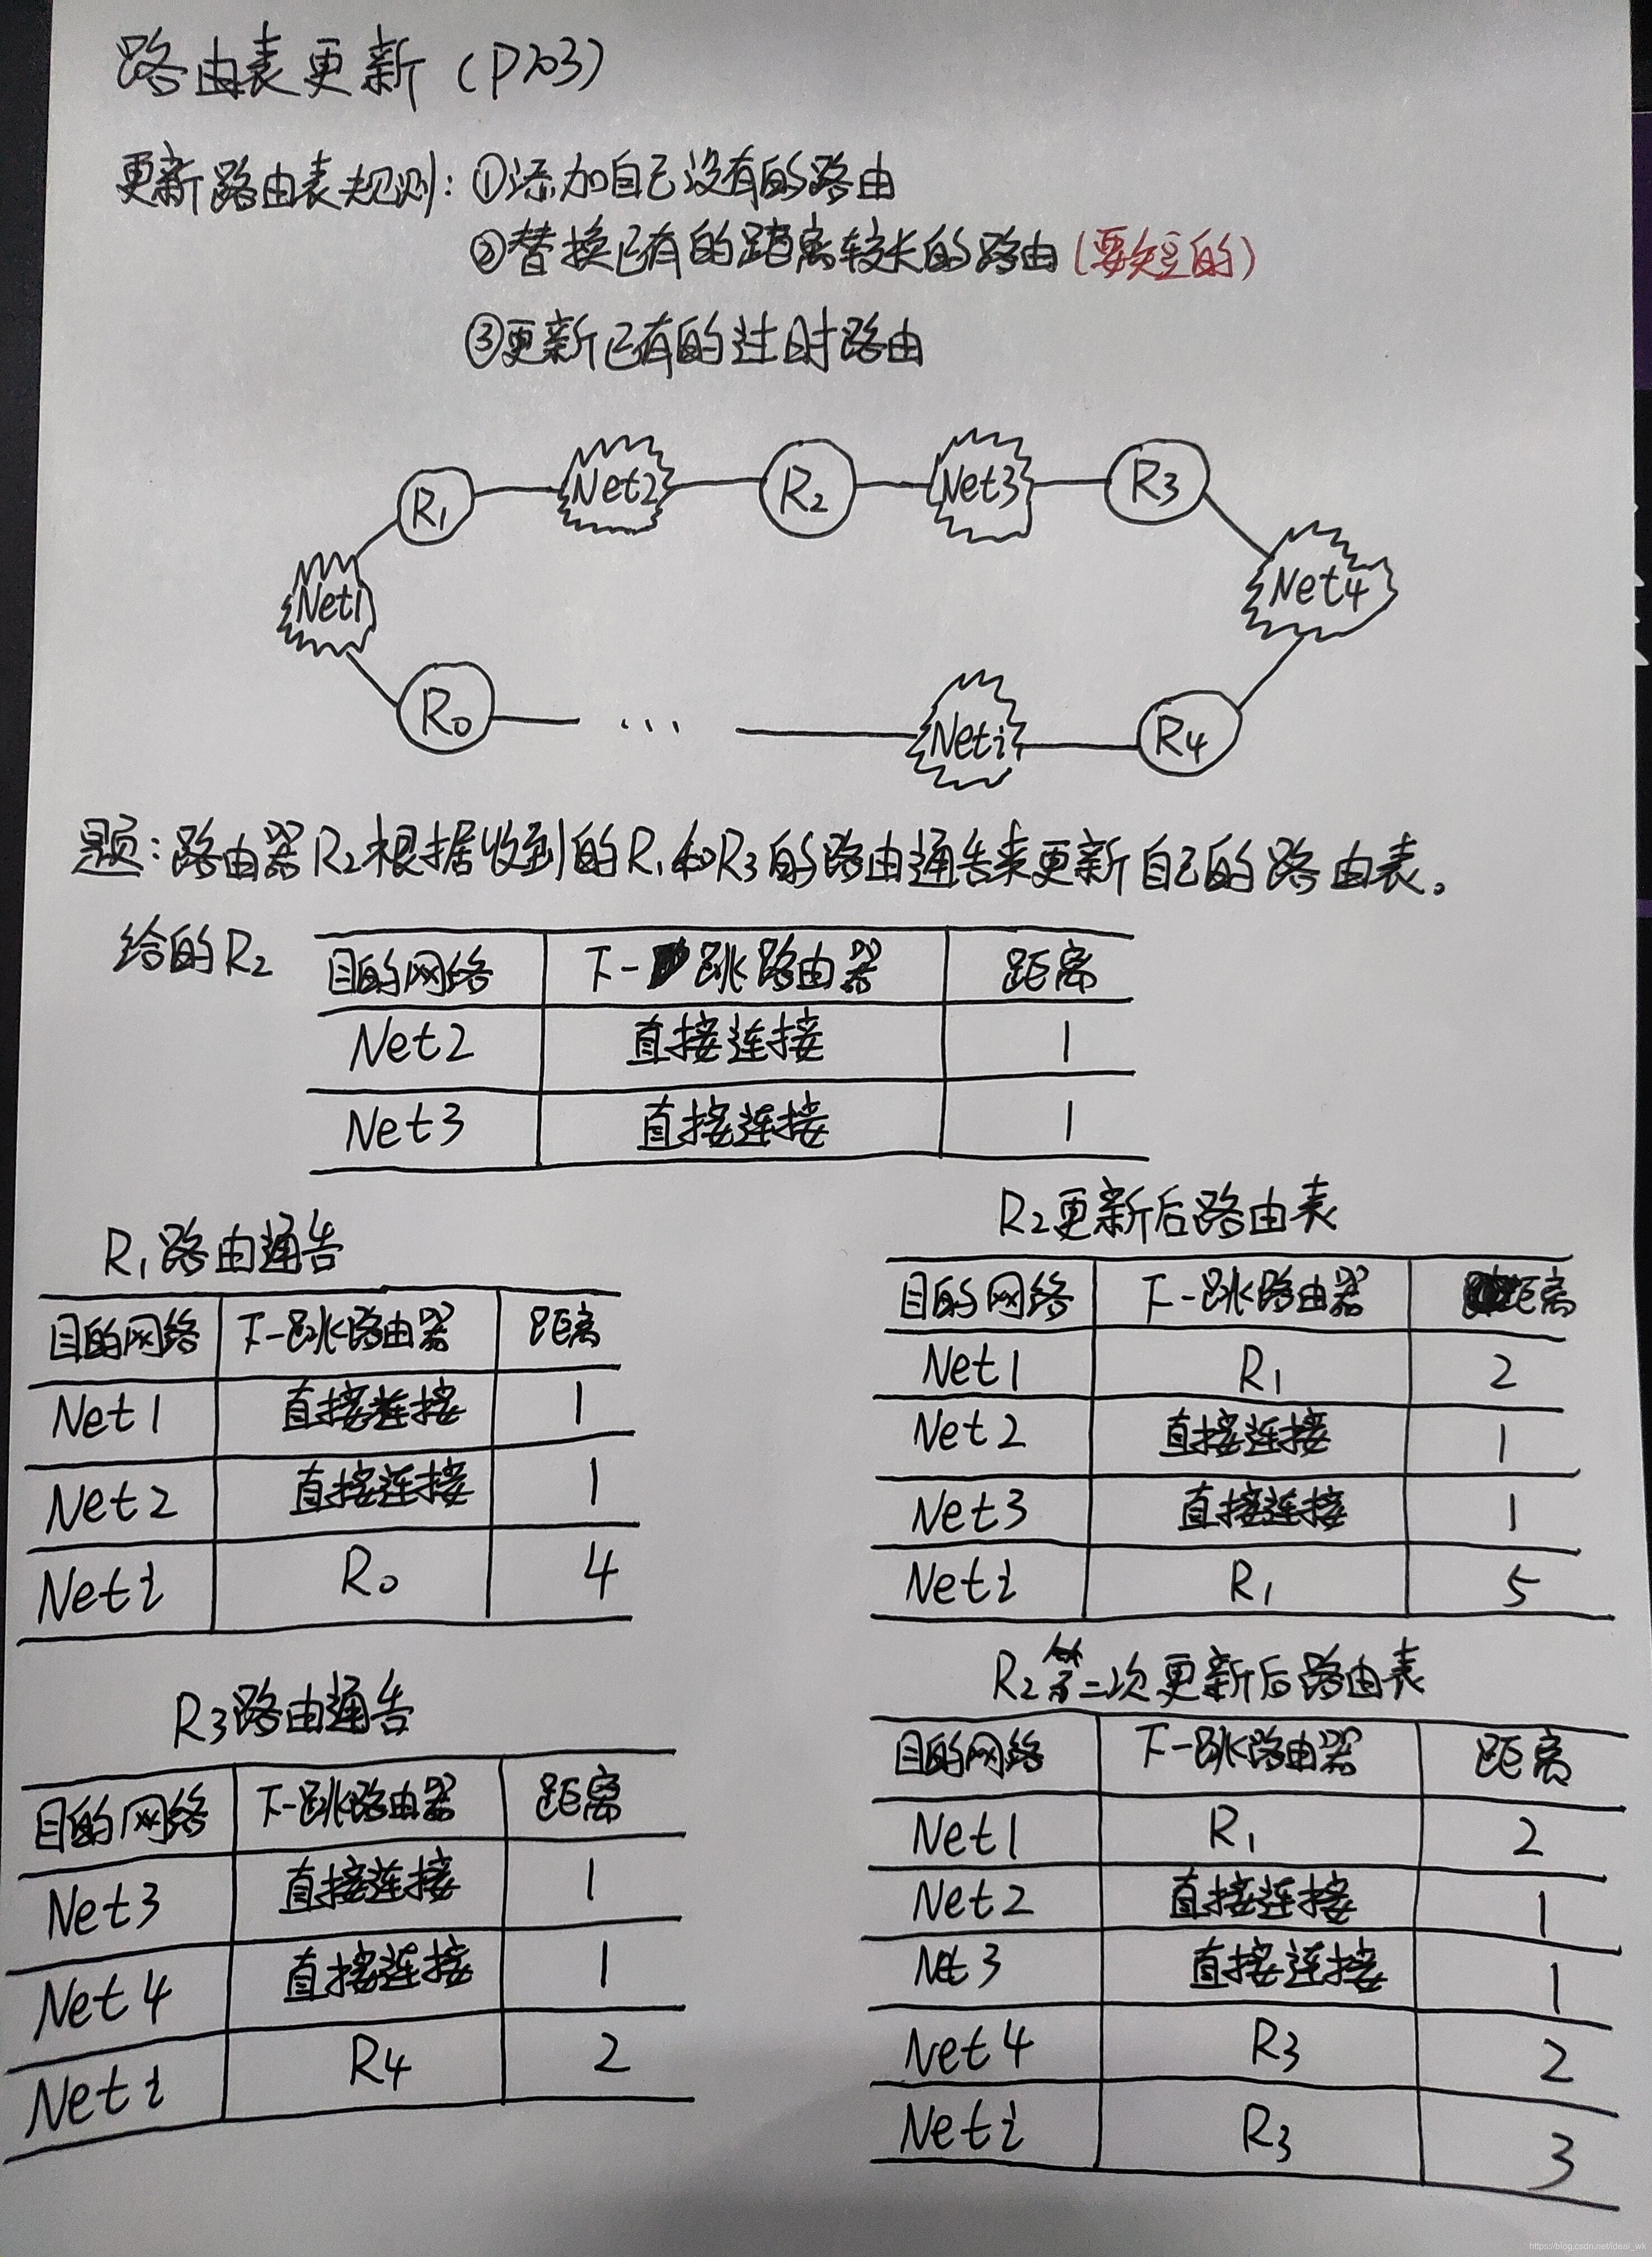 路由表更新(P203)
更新路由表规测:①添加自己没有的路由
②替换已有的距离较长的路由(要短的)
③更新已有的过时路由
R1 Net2 R2 Net3 R3
Net1 Net4
R0 ... Neti R4
题:路由器R2根据收到的R1和R3的路由通告来更新自己的路由表。
给的R2
目的网络 下一跳路由器 距离
Net2 直接连接 1
Net3 直接连接 1
R1路由通告
目的网络 下一跳路由器 距离
Net1 直接连接 1
Net2 直接连接 1
Neti R0 4
R2更新后路由表
目的网络 下一跳路由器 距离
Net1 R1 2
Net2 直接连接 1
Net3 直接连接 1
Neti R1 5
R3路由通告
目的网络 下一跳路由器 距离
Net3 直接连接 1
Net4 直接连接 1
Neti R4 2
R2第二次更新后路由表
目的网络 下一跳路由器 距离
Net1 R1 2
Net2 直接连接 1
Net3 直接连接 1
Net4 R3 2
Neti R3 3
https://blog.csdn.net/ideal_wk